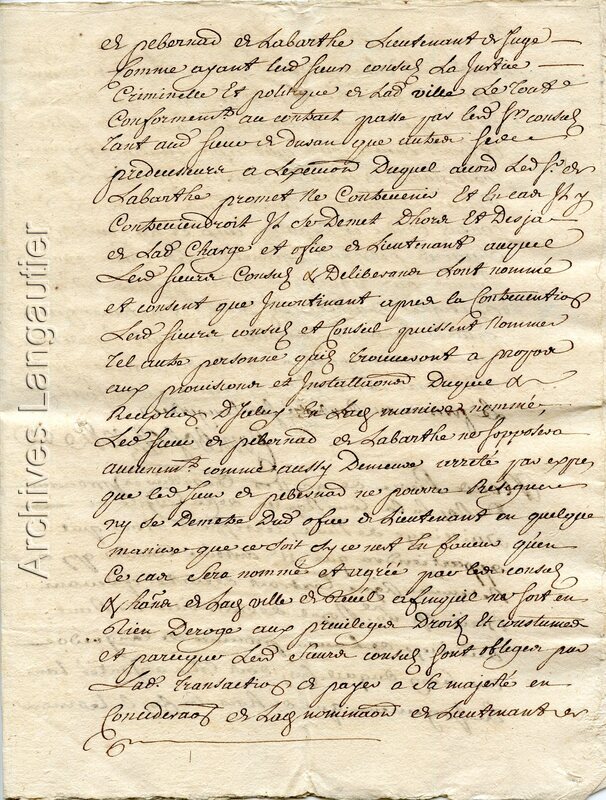 de pebernad de Labarthe Lieutenant de Juge
comme ayant lesd sieurs consuls La Justice
Criminelle Et politique de Lad ville Le Tout
Conformemt. au contract passé par lesd srs. consuls
tant aud sieur de dusan que autres ses
predecesseurs a Lexecution Duquel accord Led sr. de
Labarthe promet Ne Contrevenir Et En cas Il y
Contreviendroit Il se Demet Dhors Et Desja
de Lad Charge et ofice de Lieutenant auquel
Lesd sieurs Consuls & Deliberans Lont nommé
et consent que Incontinant apres la Contrevention
Lesd sieurs consuls et Conseil puissent Nommer
tel autre personne quils trouveront a propos
aux provisions et Installations Duquel &
Reception D'Iceluy En Lad maniere nommé,
Led sieur de pebernad de Labarthe ne sopposera
aucunemt. comme aussy Demeure arreté par expres
que led sieur de pebernad ne pourra Resigner
ny se Demetre Dud ofice de Lieutenant en quelque
maniere que ce soit sy ce nest En faveur quen
Ce cas sera nommé et agréé par lesd consuls
& de Lad ville de afinquil ne soit en
Rien Deroge aux privileges Droits Et coustumes
et parceque Lesd sieurs consuls sont obliges par
Lad. transaction de payer a sa majesté en
Consideraon de Lad nominaon de Lieutenant de
Archives Langautier